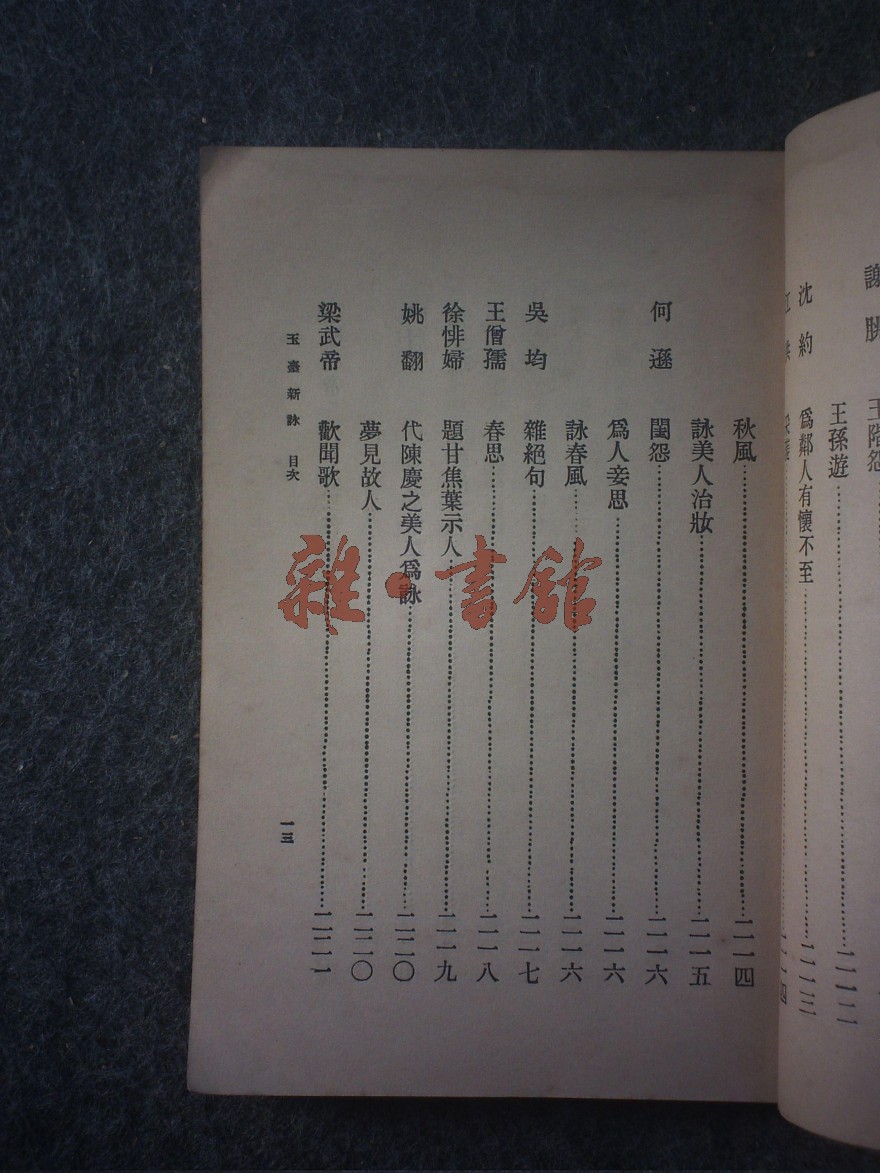 王孫遊……二一二
沈約 爲鄰人有懷不至……二一三
秋風……二一四
詠美人治妝……二一五
何遜 閨怨……二一六
爲人妾思……二一六
詠春風……二一六
吳均 雜絕句……二一七
王僧孺 春思……二一八
徐悱婦 題甘焦葉示人……二一九
姚翻 代陳慶之美人爲詠……二二〇
夢見故人……二二〇
梁武帝 歡聞歌……二二一
玉臺新詠 目次 一三
雜·書館